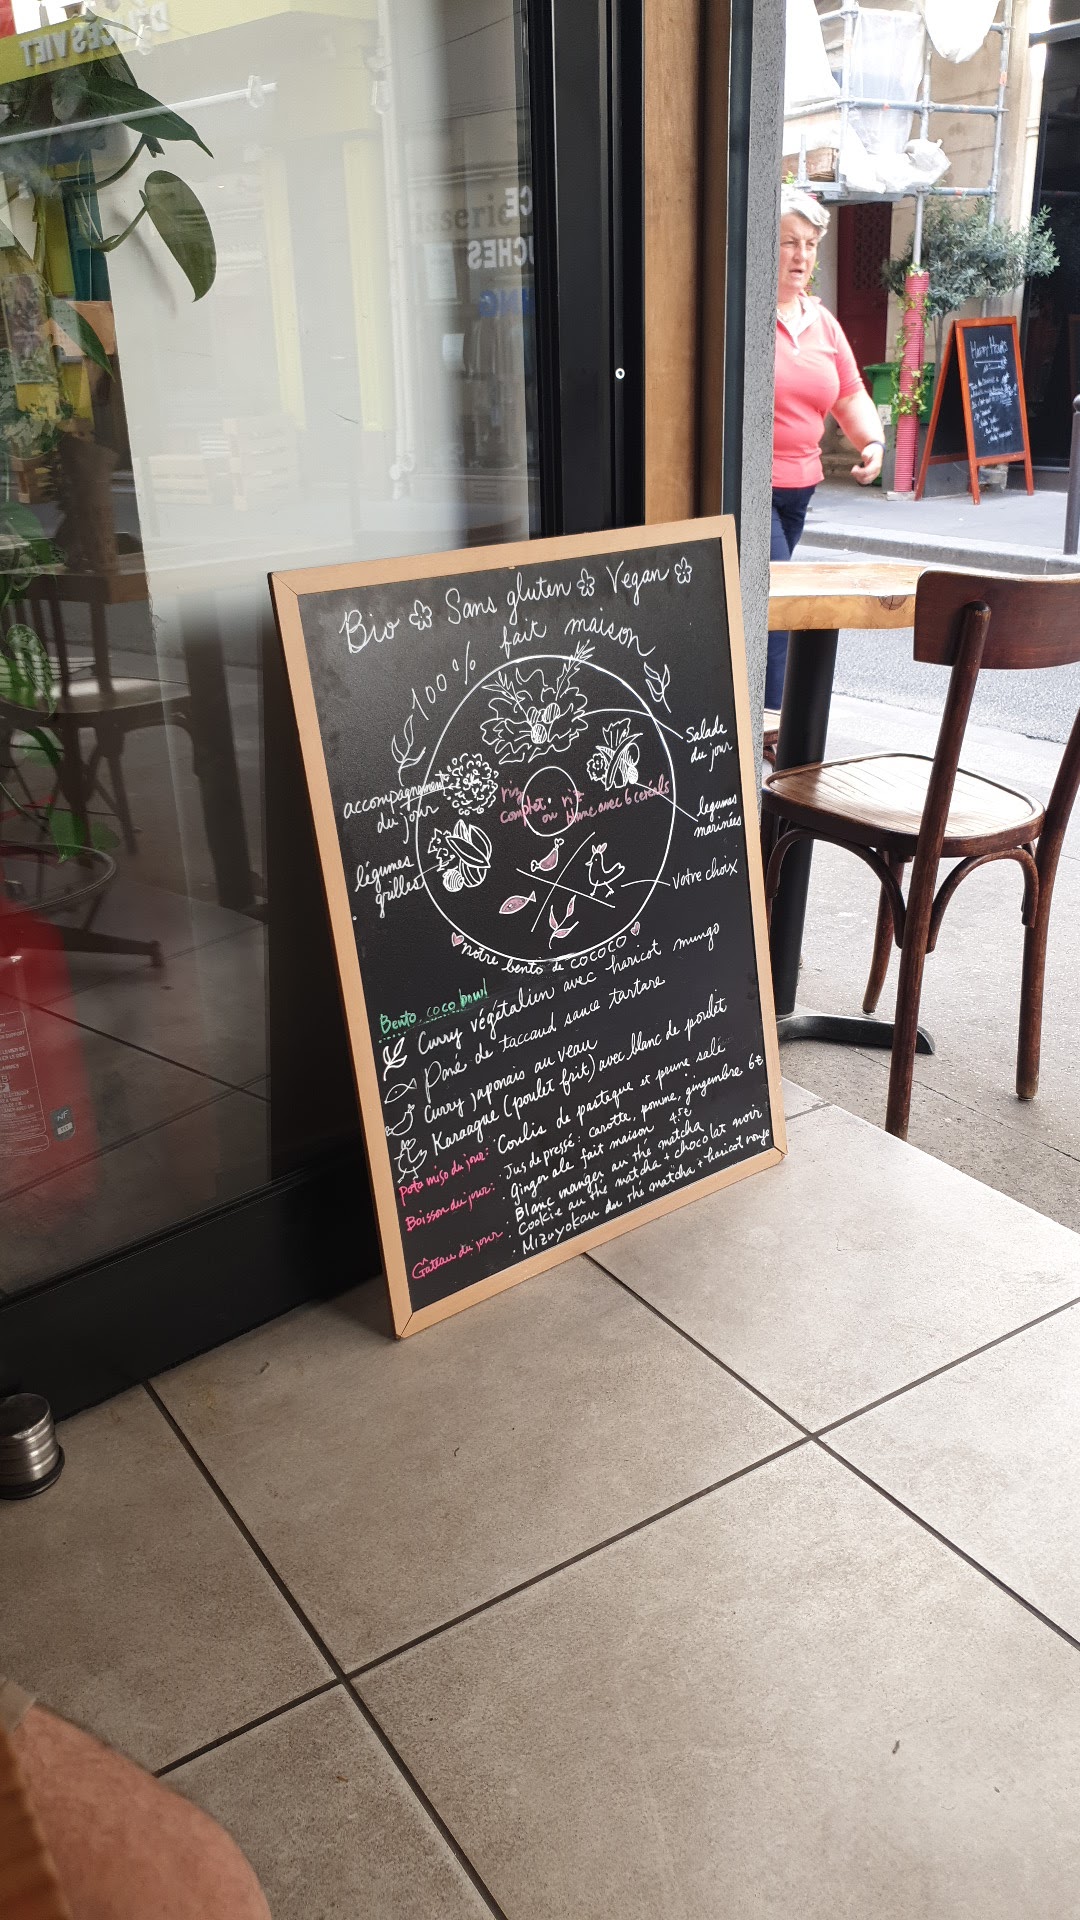 DÉLICES VIET
Bio Sans gluten Vegan
100% fait maison
Salade
du jour
accompagnement
du jour
riz
complet ou riz
blanc avec 6 céréals
legumes
marinées
légumes
grillés
votre choix
notre bento de COCOCO
Bento, coco bowl
Curry végétalien avec haricot mungo
Pané de taccaud sauce tartare
Curry japonais au veau
Karaague (poulet frit) avec blanc de poulet
Pota miso du jour: Coulis de pasteque et prune salé
Boisson du jour: · Jus de pressé: carotte, pomme, gingembre 6€
· Ginger ale fait maison 4.5€
Gâteau du jour · Blanc manger au thé matcha
· Cookie au thé matcha + chocolat noir
· Mizuyokan du thé matcha + haricot rouge
Happy Hours